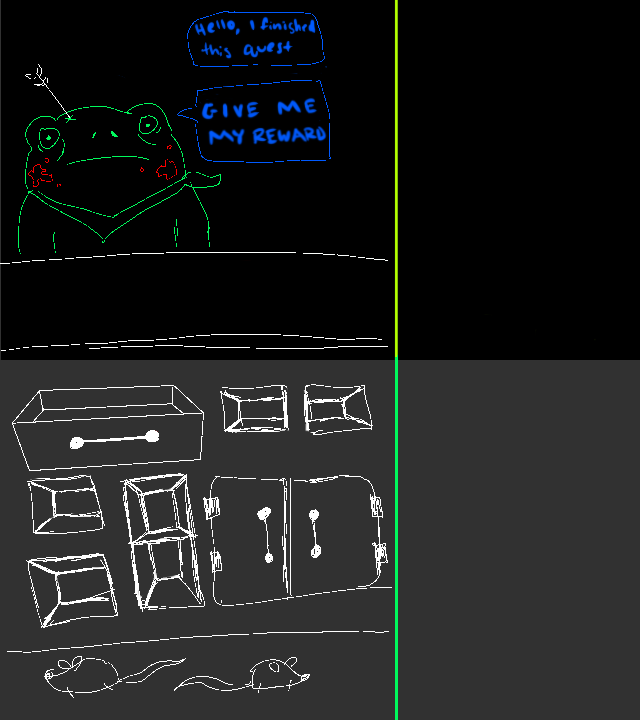 Hello, I finished
this quest
GIVE ME
MY REWARD